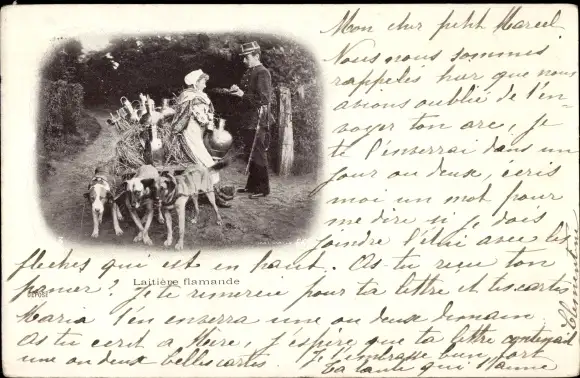 Mon cher petit Marcel.
Nous nous sommes
rappelés hier que nous
avions oublié de t'en-
voyer ton arc, je
te l'enverrai dans un
jour ou deux, écris
moi un mot pour
me dire si je dois
joindre l'étui avec les
flèches qui est en haut. As-tu reçu ton
panier? Je te remercie pour ta lettre et tes cartes
Maria t'en enverra une ou deux demain
As tu écrit à Mère, j'espère que ta lettre contenait
une ou deux belles cartes. Je t'embrasse bien fort
Ta tante qui t'aime
Laitière flamande
DÉPOSÉ